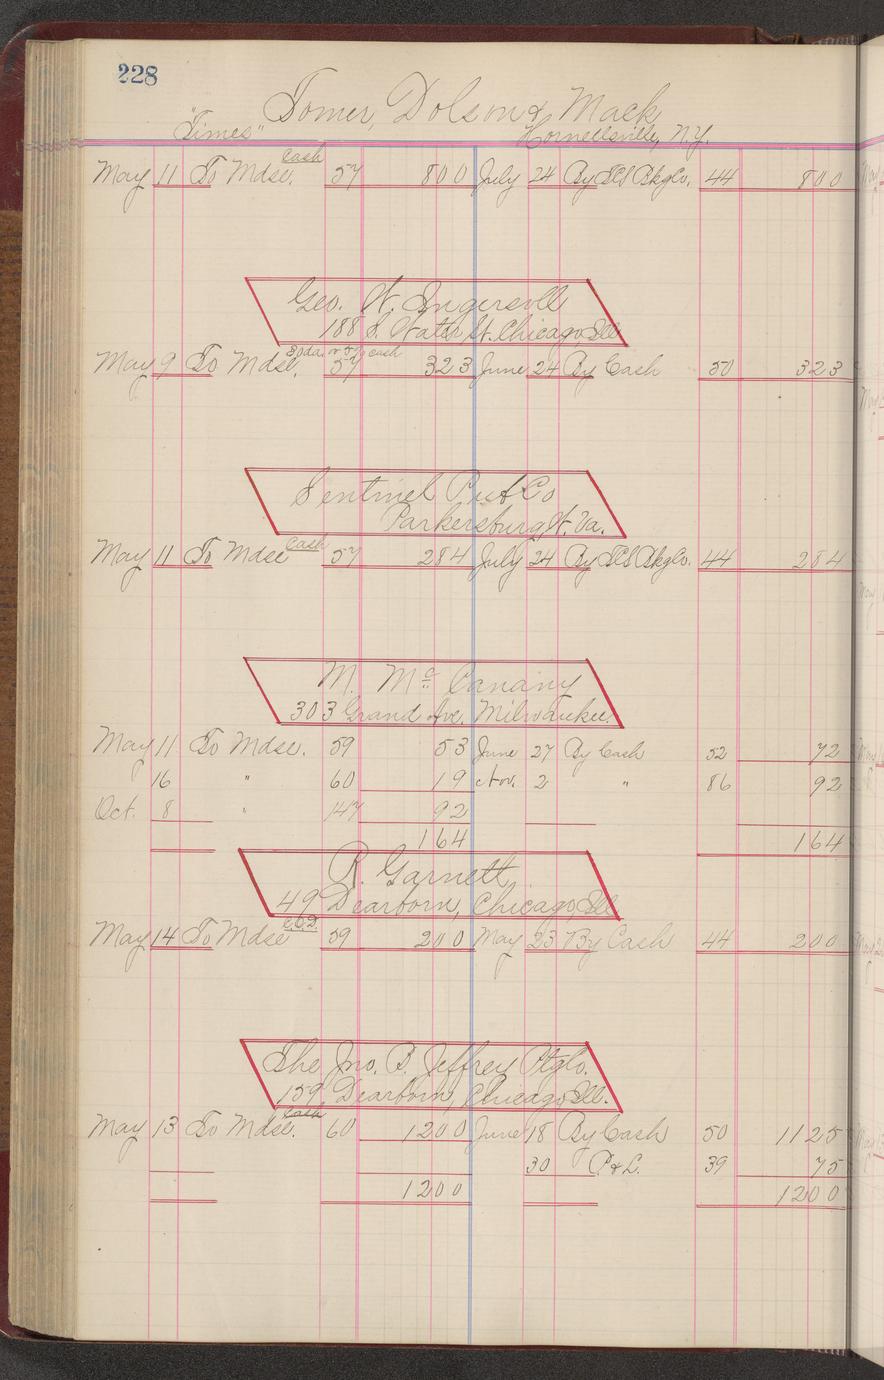 228
Tomer, Dolson & Mack
"Times" Hornellsville, N.Y.
Cash
May 11 To Mdse. 57 800 July 24 By Bkg Co. 44 800
Geo. W. Ingersoll
188 S. Water St. Chicago, Ill
30 da. or 5% cash
May 9 To Mdse. 57 323 June 24 By Cash 50 323
Sentinel Pub Co
Parkersburg W. Va.
Cash
May 11 To Mdse 57 284 July 24 By Bkg Co. 44 284
M. Mc Canany
303 Grand Ave. Milwaukee.
May 11 To Mdse. 59 53 June 27 By Cash 52 72
16 " 60 19 Nov. 2 " 86 92
Oct. 8 " 147 92
164 164
R. Garnett
49 Dearborn, Chicago, Ill
C.O.D.
May 14 To Mdse 59 200 May 23 By Cash 44 200
The Jno. B. Jeffrey Ptg Co.
159 Dearborn, Chicago Ill.
Cash
May 13 To Mdse. 60 1200 June 18 By Cash 50 1125
30 P. & L. 39 75
1200 1200